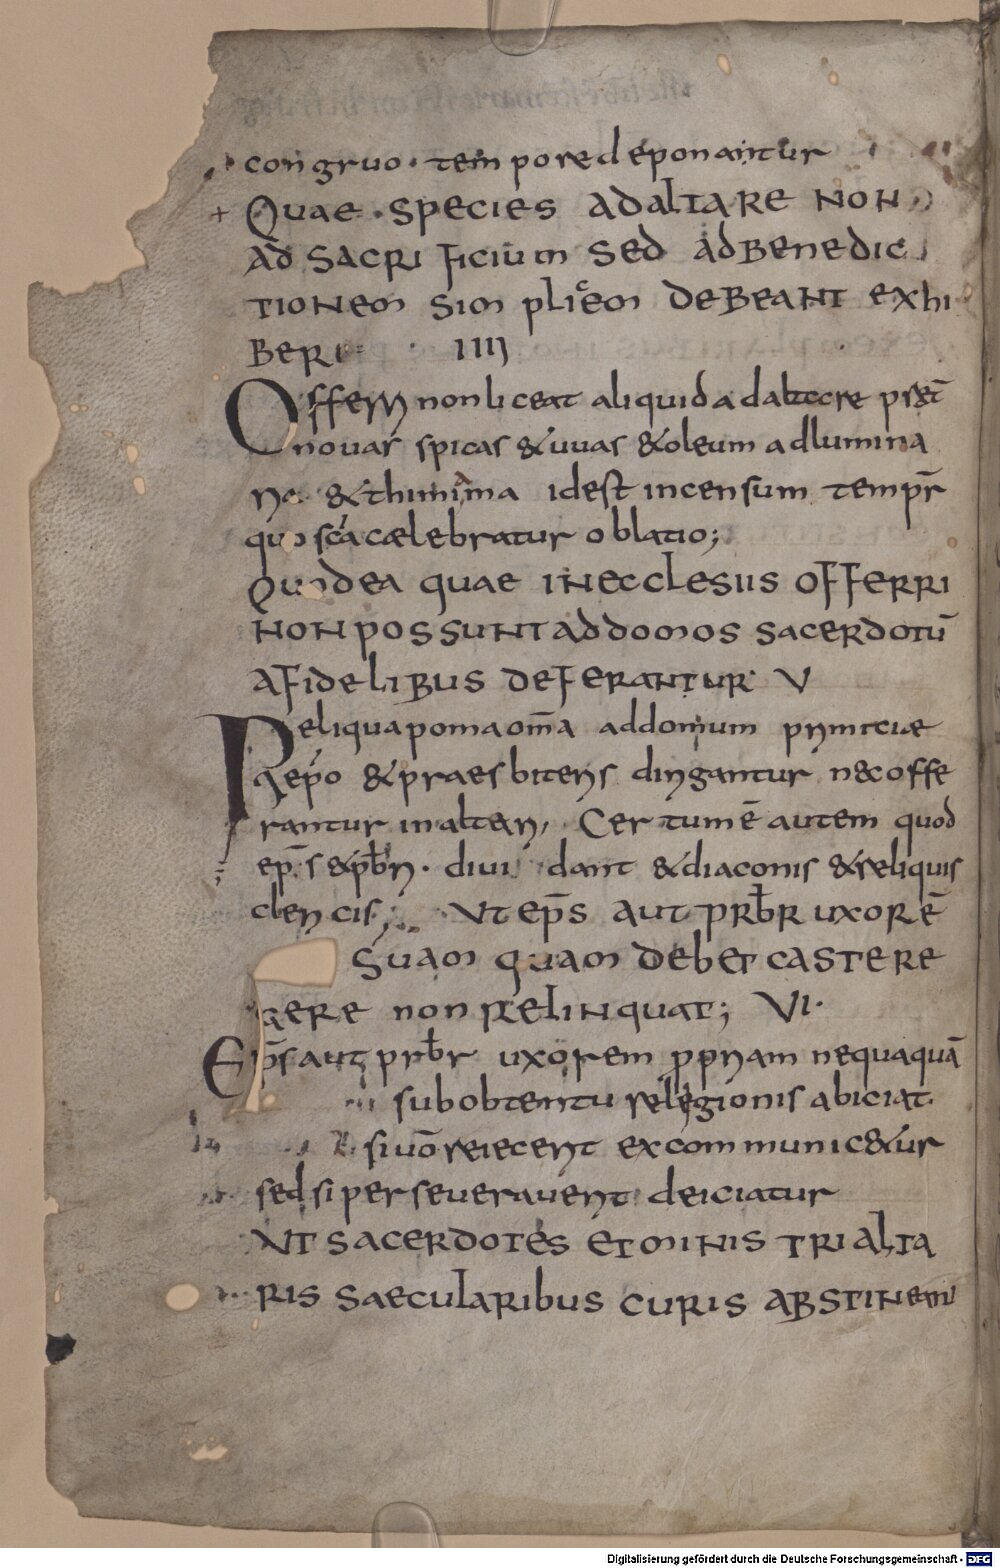 congruo · tempore deponantur
+ QUAE · SPECIES AD ALTARE NON
AD SACRIFICIUM SED AD BENEDIC
TIONEM SIMPLICEM DEBEANT EXHI
BERI IIII
Offerri non liceat aliquid ad altare praet̄
novas spicas & uvas & oleum ad lumina
ria & thimiama id est incensum tempr̄
quo sc̄a caelebratur oblatio;
QUOD EA QUAE IN ECCLESIIS OFFERRI
NON POSSUNT AD DOMOS SACERDOTŪ
A FIDELIBUS DEFERANTUR V
Reliqua poma om̄a ad domum primiciae
ep̄o & praesbiteris dirigantur nec offe
rantur in altari, Certum ē autem quod
ep̄s & pr̄bri · dividant & diaconis & reliquis
clericis; UT EP̄S AUT PRB̄R UXORĒ
SUAM QUAM DEBET CASTE RE
GERE NON RELINQUAT; VI·
Ep̄s aut prb̄r uxorem propriam nequaquā
sub obtentu relegionis abiciat
si vō reiecerit excommunic&ur
sed si perseveraverit deiciatur
UT SACERDOTES ET MINISTRI ALTA
RIS SAECULARIBUS CURIS ABSTINEANT
Digitalisierung gefördert durch die Deutsche Forschungsgemeinschaft - DFG